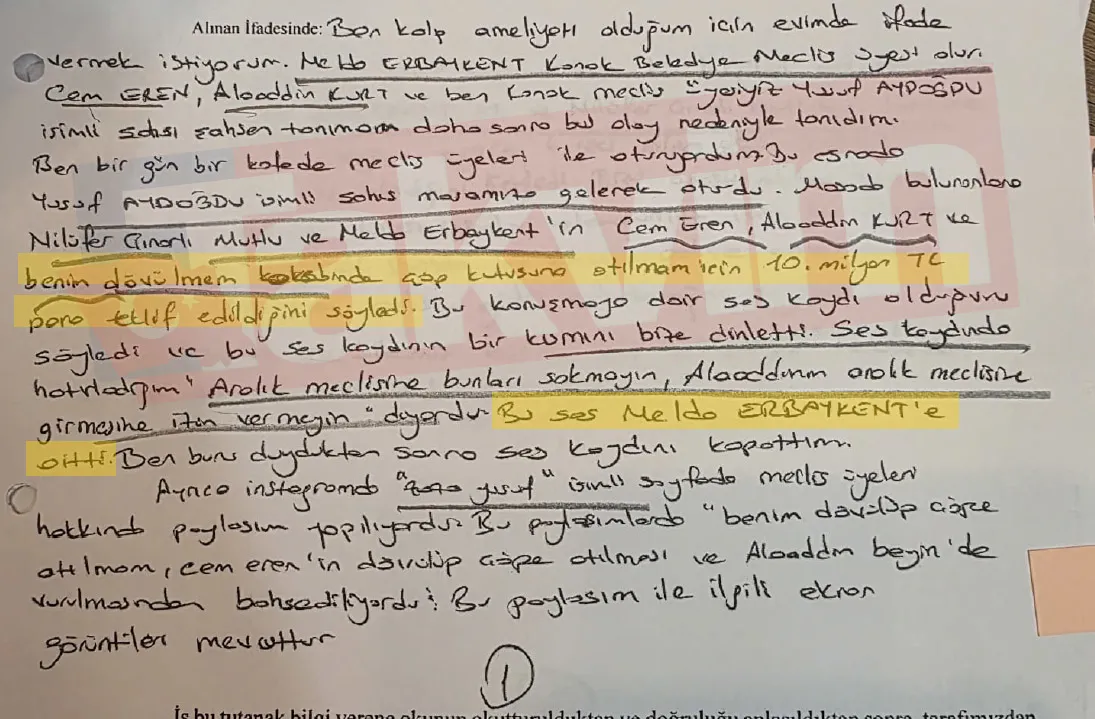 Alınan İfadesinde: Ben kalp ameliyatı olduğum için evimde ifade
vermek istiyorum. Melda ERBAYKENT Konak Belediye Meclis üyesi olur.
Cem EREN, Alaaddin KURT ve ben Konak meclis üyesiyiz Yusuf AYDOĞDU
isimli şahsı şahsen tanımam daha sonra bu olay nedeniyle tanıdım.
Ben bir gün bir kafede meclis üyeleri ile oturuyordum. Bu esnada
Yusuf AYDOĞDU isimli şahıs masamıza gelerek oturdu. Masada bulunanlara
Nilüfer Çınarlı Mutlu ve Melda Erbaykent'in Cem Eren, Alaaddin KURT ve
benim dövülmem çöp kutusuna atılmam için 10. milyon TL
para teklif edildiğini söyledi. Bu konuşmaya dair ses kaydı olduğunu
söyledi ve bu ses kaydının bir kısmını bize dinletti. Ses kaydında
hatırladığım "Aralık meclisine bunları sokmayın, Alaaddinin aralık meclisine
girmesine izin vermeyin" diyordu. Bu ses Melda ERBAYKENT'e
aitti. Ben bunu duyduktan sonra ses kaydını kapattım.
Ayrıca instagramda yusuf" isimli sayfada meclis üyeleri
hakkında paylaşım yapılıyordu. Bu paylaşımlarda "benim dövülüp çöpe
atılmam, cem eren'in dövülüp çöpe atılması ve Alaaddin beyin'de
vurulmasından bahsediliyordu. Bu paylaşım ile ilgili ekran
görüntüleri mevcuttur
1
İş bu tutanak bilgi verene okunup okutturulduktan ve doğruluğu anlaşıldıktan sonra, tarafımızdan